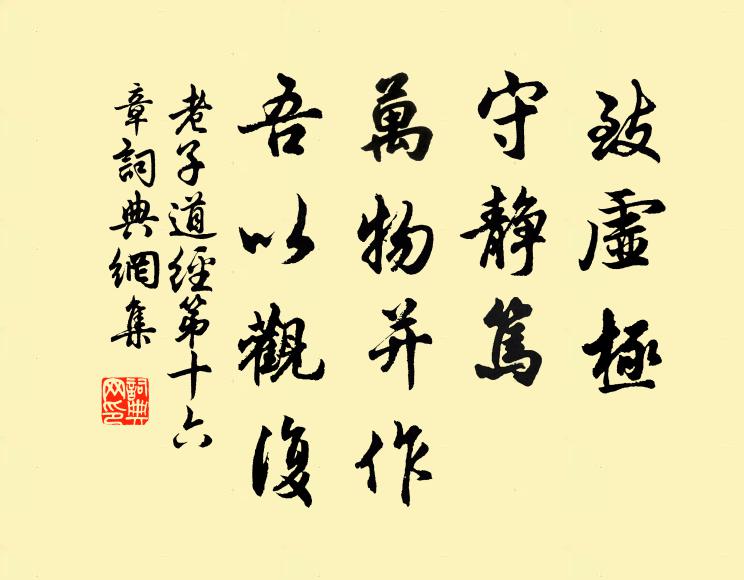 致虛極
守静篤
萬物并作
吾以觀復
老子道經第十六
章詞典網集
詞典
网印